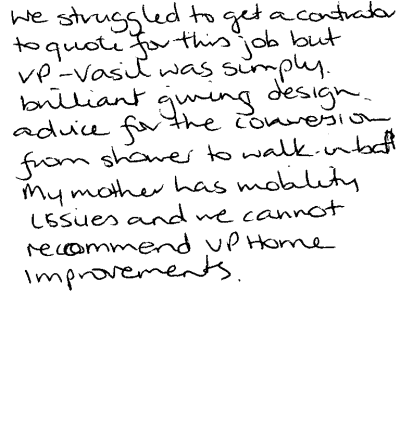 We struggled to get a contractor
to quote for this job but
VP-Vasil was simply.
brilliant giving design.
advice for the conversion
from shower to walk-in bath
My mother has mobility
issues and we cannot
recommend VP Home
Improvements.